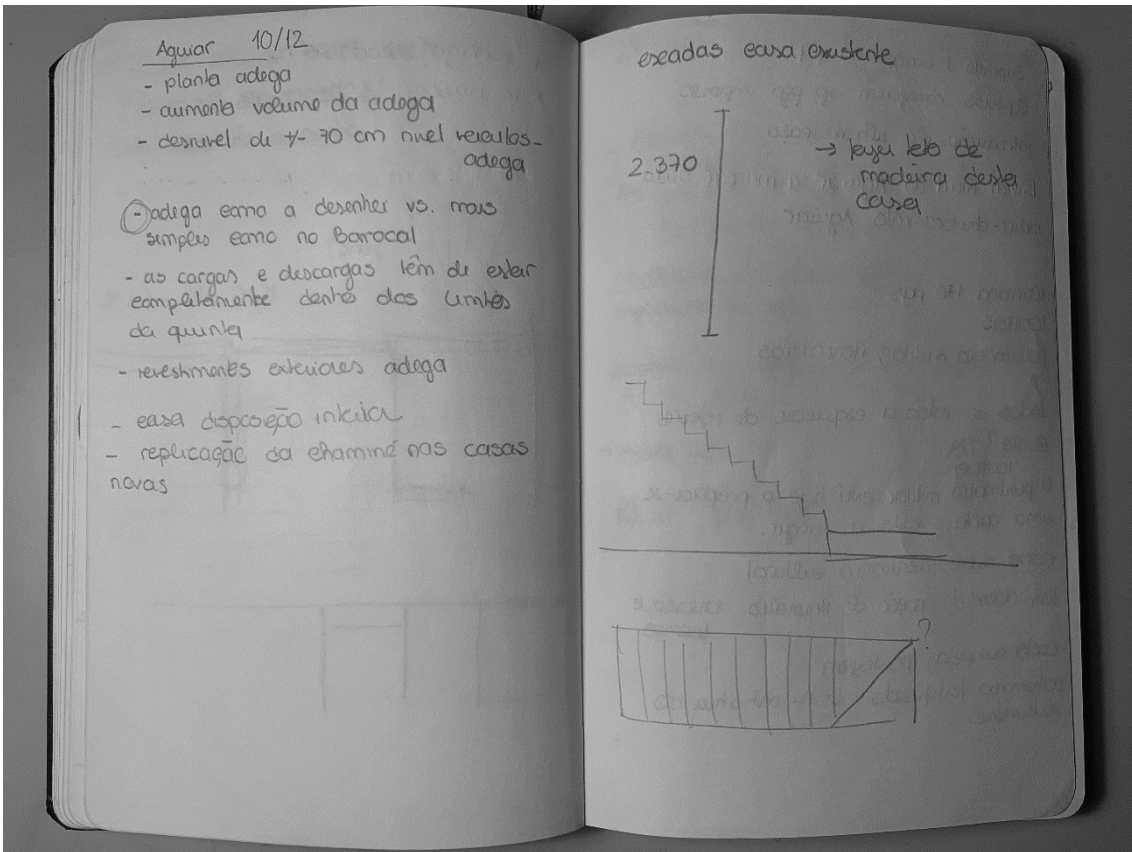 Aguiar 10/12
- planta adega
- aumento volume da adega
- desnivel de +/- 70 cm nivel veiculos-
adega
- adega como a desenhei vs. mais
simples como no Barrocal
- as cargas e descargas têm de estar
completamente dentro dos limites
da quinta
- revestimentos exteriores adega
- casa disposição inteira
- replicação da chaminé nas casas
novas
escadas casa existente
2.370
→ teto de
madeira desta
casa
?